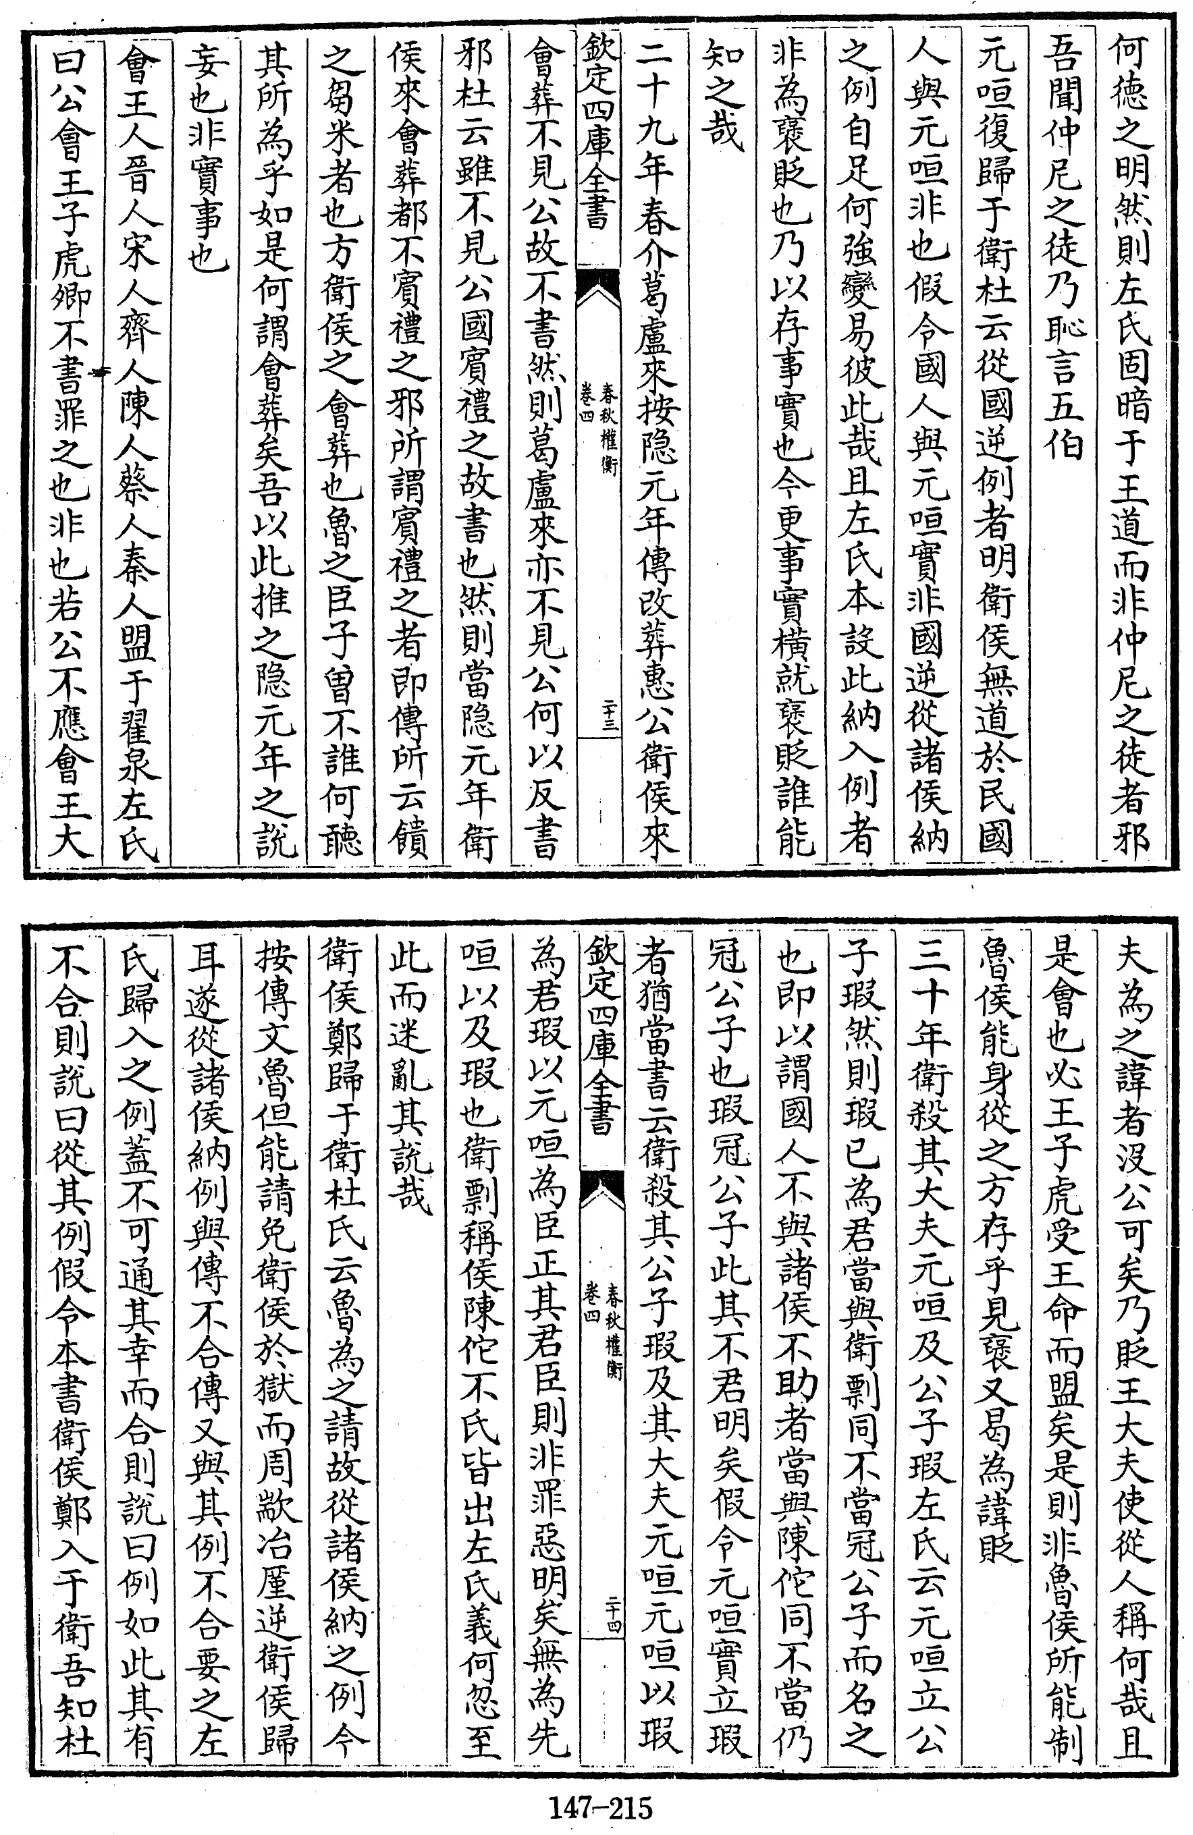 何徳之明然則左氏固暗于王道而非仲尼之徒者邪
吾聞仲尼之徒乃恥言五伯
元咺復歸于衛杜云從國逆例者明衛侯無道於民國
人與元咺非也假令國人與元咺實非國逆從諸侯納
之例自足何強變易彼此哉且左氏本設此納入例者
非為褒貶也乃以存事實也今更事實橫就褒貶誰能
知之哉
二十九年春介葛盧來按隐元年傳改葬惠公衛侯來
欽定四庫全書
春秋權衡
卷四
二十三
會葬不見公故不書然則葛盧來亦不見公何以反書
邪杜云雖不見公國賓禮之故書也然則當隐元年衛
侯來會葬都不賓禮之邪所謂賓禮之者即傳所云饋
之芻米者也方衛侯之會葬也魯之臣子曽不誰何聽
其所為乎如是何謂會葬矣吾以此推之隐元年之說
妄也非實事也
會王人晉人宋人齊人陳人蔡人秦人盟于翟泉左氏
曰公會王子虎卿不書罪之也非也若公不應會王大
夫為之諱者沒公可矣乃貶王大夫使從人稱何哉且
是會也必王子虎受王命而盟矣是則非魯侯所能制
魯侯能身從之方存乎見褒又曷為諱貶
三十年衛殺其大夫元咺及公子瑕左氏云元咺立公
子瑕然則瑕已為君當與衛剽同不當冠公子而名之
也即以謂國人不與諸侯不助者當與陳佗同不當仍
冠公子也瑕冠公子此其不君明矣假令元咺實立瑕
者猶當書云衛殺其公子瑕及其大夫元咺元咺以瑕
欽定四庫全書
春秋權衡
卷四
二十四
為君瑕以元咺為臣正其君臣則非罪惡明矣無為先
咺以及瑕也衛剽稱侯陳佗不氏皆出左氏義何忽至
此而迷亂其說哉
衛侯鄭歸于衛杜氏云魯為之請故從諸侯納之例今
按傳文魯但能請免衛侯於獄而周歂冶廑逆衛侯歸
耳遂從諸侯納例與傳不合傳又與其例不合要之左
氏歸入之例蓋不可通其幸而合則說曰例如此其有
不合則說曰從其例假令本書衛侯鄭入于衛吾知杜
147-215